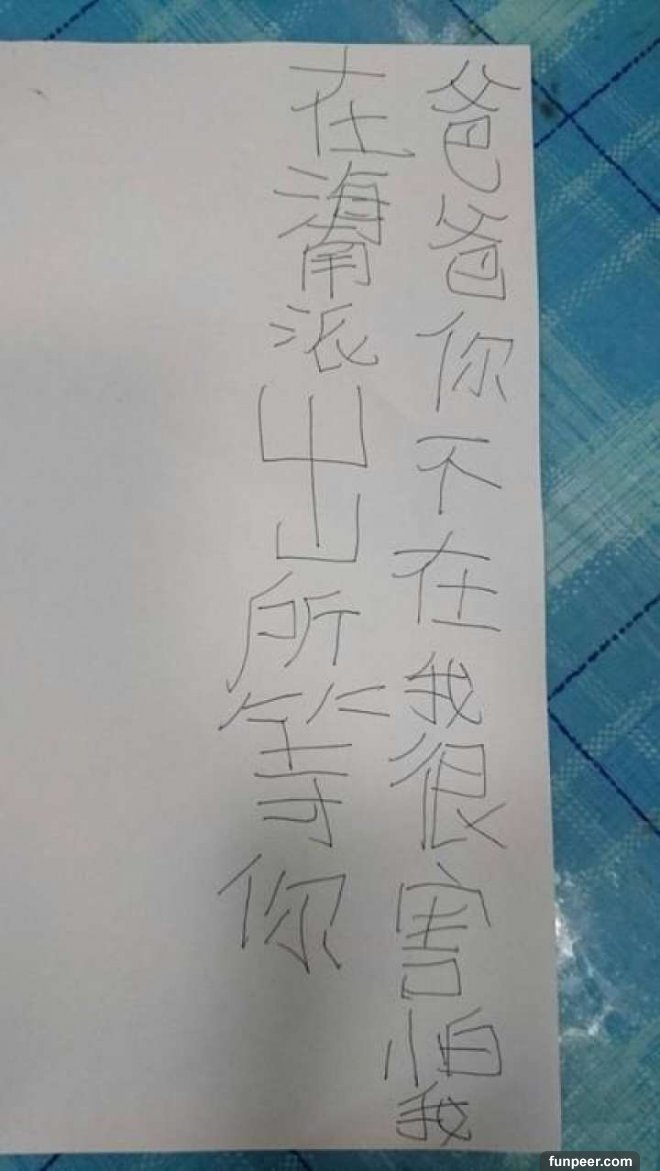 爸爸你不在我很害怕我
在海南派出所等你
funpeer.com